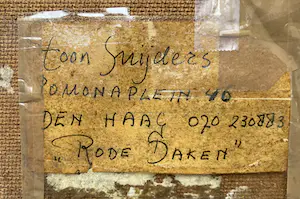 Toon Snijders
POMONAPLEIN 40
DEN HAAG 070 230883
"RODE DAKEN"